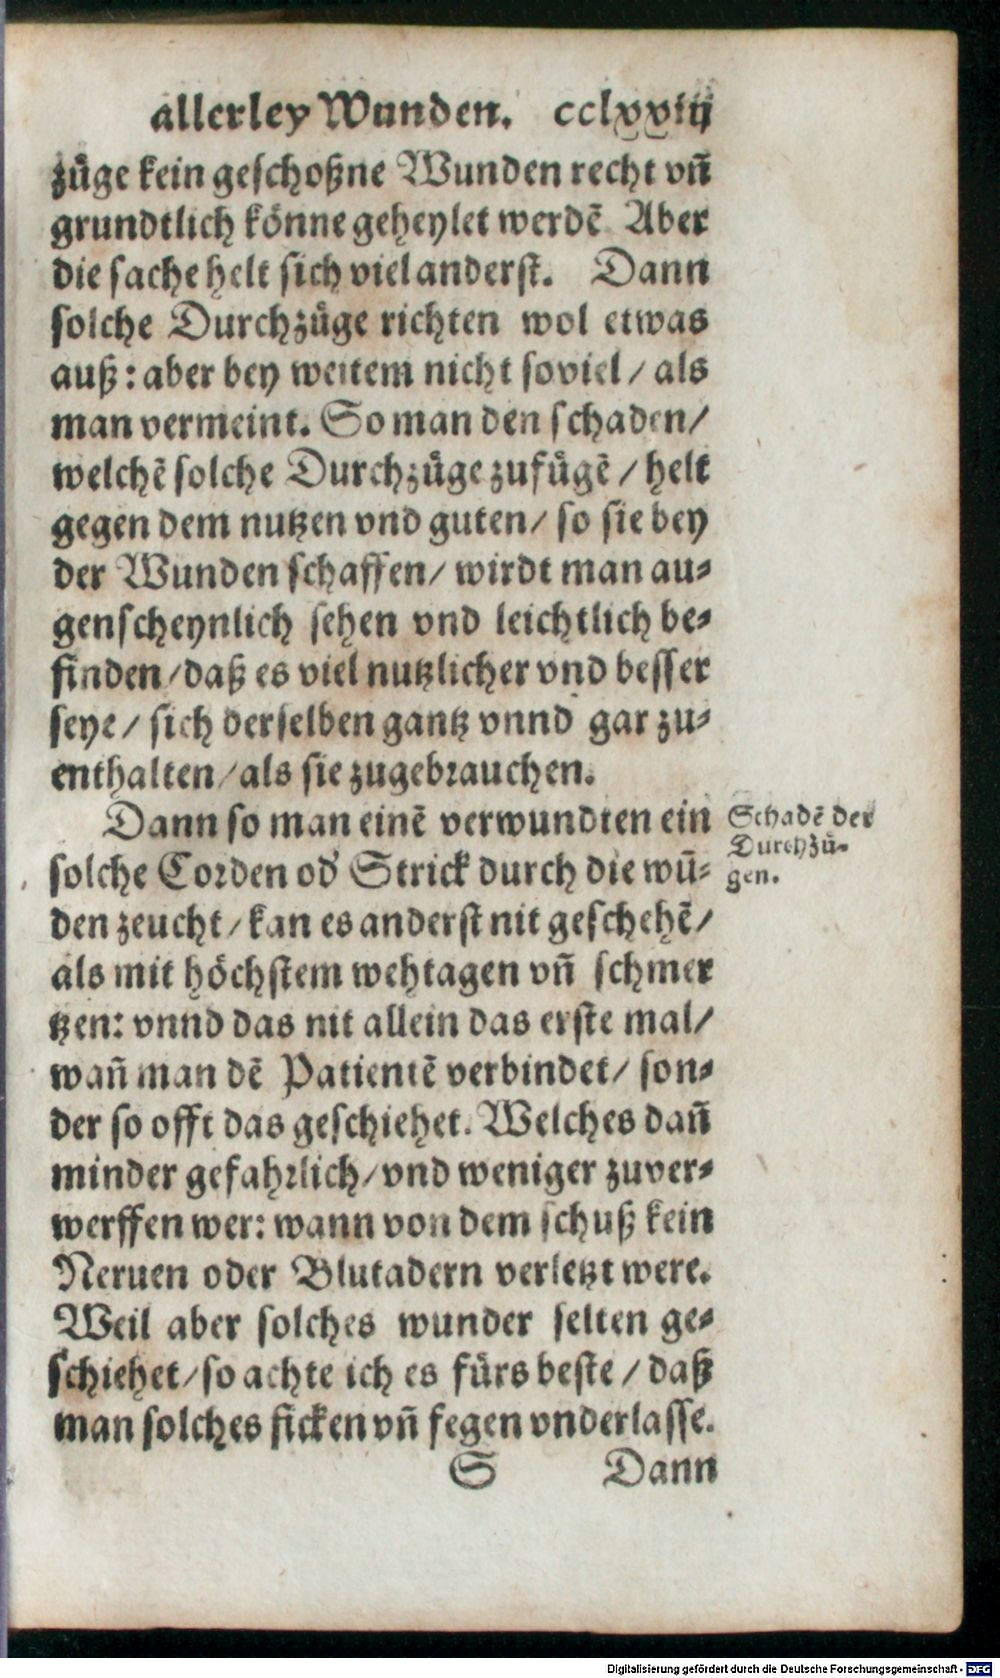 allerley Wunden. cclxxiij
züge kein geschoßne Wunden recht vñ
grundtlich könne geheylet werdẽ Aber
die sache helt sich viel anderst. Dann
solche Durchzüge richten wol etwas
auß: aber bey weitem nicht soviel / als
man vermeint. So man den schaden /
welchẽ solche Durchzüge zufügẽ / helt
gegen dem nutzen vnd guten / so sie bey
der Wunden schaffen / wirdt man au-
genscheynlich sehen vnd leichtlich be-
finden / daß es viel nutzlicher vnd besser
seye / sich derselben gantz vnnd gar zu-
enthalten / als sie zugebrauchen.
Dann so man einẽ verwundten ein
solche Corden od' Strick durch die wũ-
den zeucht / kan es anderst nit geschehẽ /
als mit höchstem wehtagen vñ schmer
tzen: vnnd das nit allein das erste mal /
wañ man dẽ Patientẽ verbindet / son-
der so offt das geschiehet. Welches dañ
minder gefahrlich / vnd weniger zuver-
werffen wer: wann von dem schuß kein
Neruen oder Blutadern verletzt were.
Weil aber solches wunder selten ge-
schiehet / so achte ich es fürs beste / daß
man solches ficken vñ fegen vnderlasse.
S Dann
Schadẽ der
Durchzü-
gen.
Digitalisierung gefördert durch die Deutsche Forschungsgemeinschaft - DFG